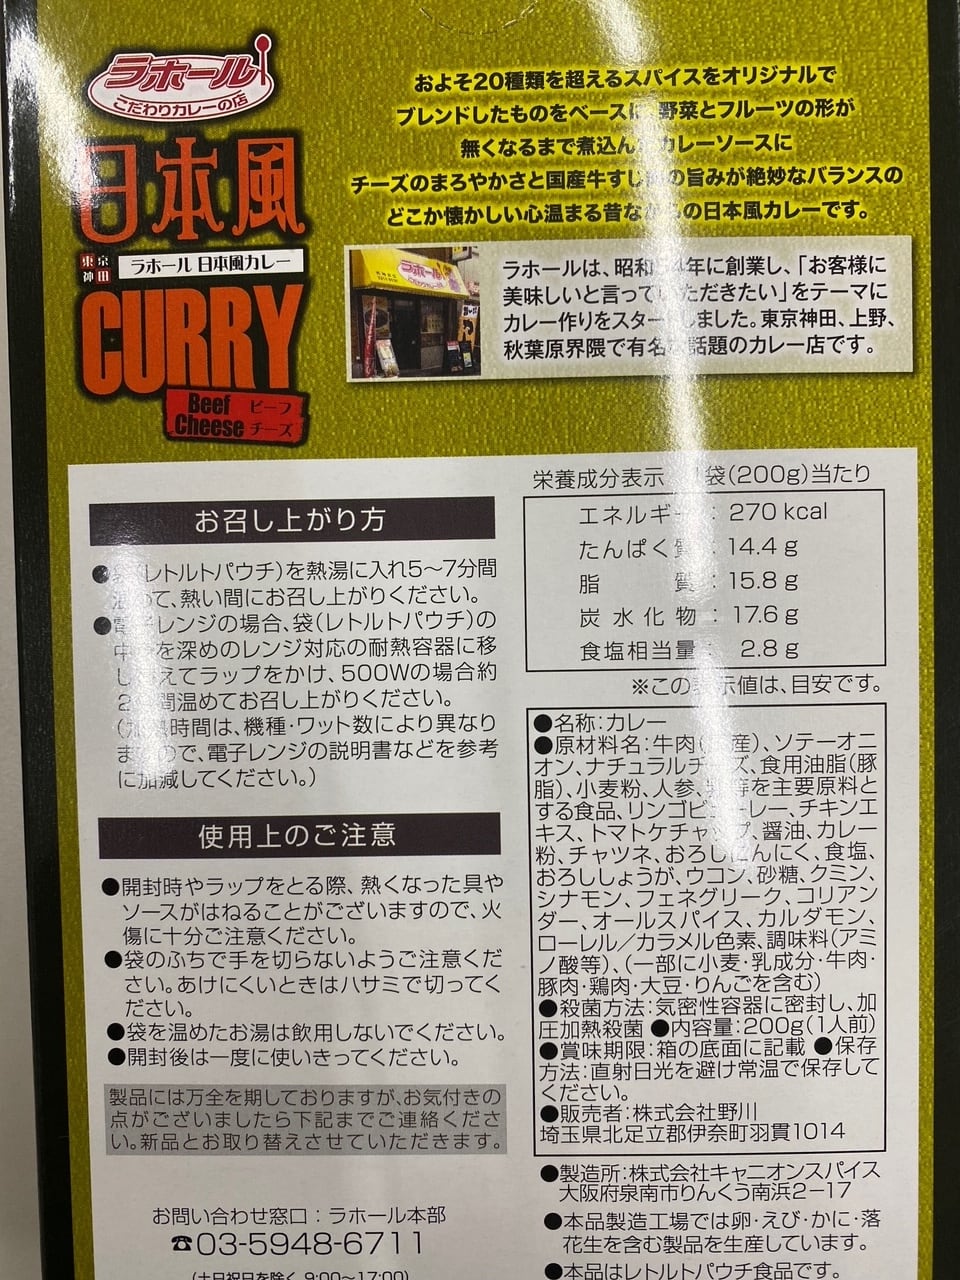 ラホール
こだわりカレーの店
日本風
東京
神田
ラホール 日本風カレー
CURRY
Beef
Cheese
ビーフ
チーズ
およそ20種類を超えるスパイスをオリジナルで
ブレンドしたものをベースに 野菜とフルーツの形が
無くなるまで煮込ん カレーソースに
チーズのまろやかさと国産牛すじ の旨みが絶妙なバランスの
どこか懐かしい心温まる昔ながらの日本風カレーです。
ラホールは、昭和 4年に創業し、「お客様に
美味しいと言っていただきたい」をテーマに
カレー作りをスタートしました。東京神田、上野、
秋葉原界隈で有名な話題のカレー店です。
お召し上がり方
●袋(レトルトパウチ)を熱湯に入れ5〜7分間
温めて、熱い間にお召し上がりください。
●電子レンジの場合、袋(レトルトパウチ)の
中身を深めのレンジ対応の耐熱容器に移
し替えてラップをかけ、500Wの場合約
2分間温めてお召し上がりください。
(加熱時間は、機種・ワット数により異なり
ますので、電子レンジの説明書などを参考
に加減してください。)
使用上のご注意
●開封時やラップをとる際、熱くなった具や
ソースがはねることがございますので、火
傷に十分ご注意ください。
●袋のふちで手を切らないようご注意くだ
さい。あけにくいときはハサミで切ってく
ださい。
●袋を温めたお湯は飲用しないでください。
●開封後は一度に使いきってください。
製品には万全を期しておりますが、お気付きの
点がございましたら下記までご連絡くださ
い。新品とお取り替えさせていただきます。
お問い合わせ窓口：ラホール本部
☎03-5948-6711
(土日祝日を除く 9:00〜17:00)
栄養成分表示 1袋(200g)当たり
エネルギー：270 kcal
たんぱく質：14.4 g
脂 質：15.8 g
炭水化物：17.6 g
食塩相当量： 2.8 g
※この表示値は、目安です。
●名称：カレー
●原材料名：牛肉(国産)、ソテーオニ
オン、ナチュラルチーズ、食用油脂(豚
脂)、小麦粉、人参、乳等を主要原料と
する食品、リンゴピューレー、チキンエ
キス、トマトケチャップ、醤油、カレー
粉、チャツネ、おろしにんにく、食塩、
おろししょうが、ウコン、砂糖、クミン、
シナモン、フェネグリーク、コリアン
ダー、オールスパイス、カルダモン、
ローレル／カラメル色素、調味料(アミ
ノ酸等)、(一部に小麦・乳成分・牛肉・
豚肉・鶏肉・大豆・りんごを含む)
●殺菌方法：気密性容器に密封し、加
圧加熱殺菌 ●内容量：200g(1人前)
●賞味期限：箱の底面に記載 ●保存
方法：直射日光を避け常温で保存して
ください。
●販売者：株式会社野川
埼玉県北足立郡伊奈町羽貫1014
●製造所：株式会社キャニオンスパイス
大阪府泉南市りんくう南浜2−17
●本品製造工場では卵・えび・かに・落
花生を含む製品を生産しています。
●本品はレトルトパウチ食品です。